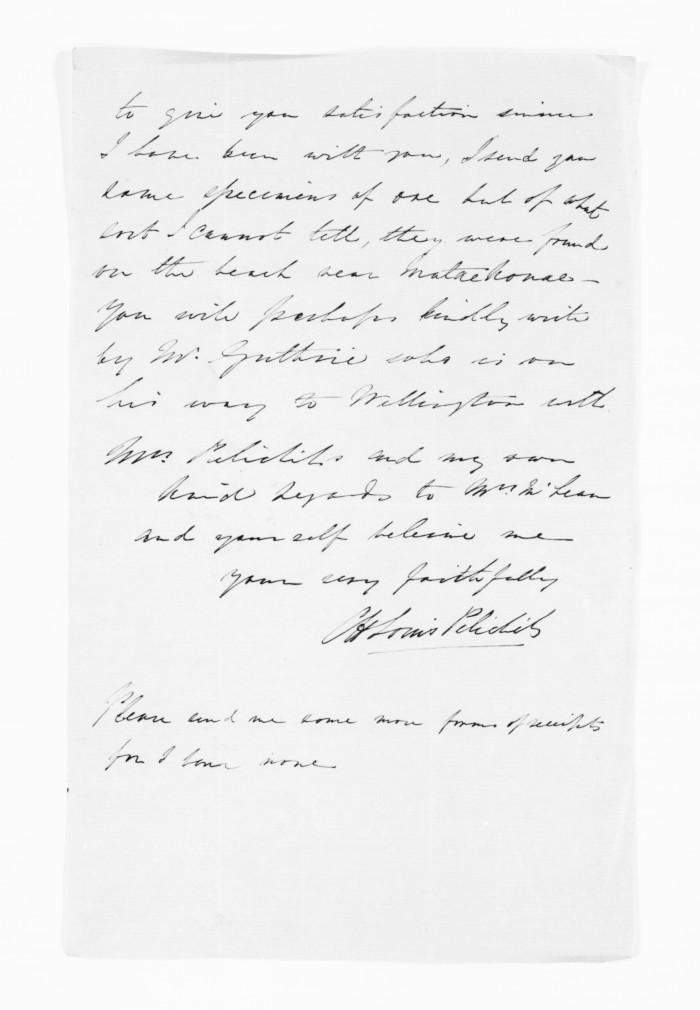 to give you satisfaction since
I have been with you, I send you
some specimens of ore but of what
sort I cannot tell, they were found
on the beach near Matachonae -
You will perhaps kindly write
by Mr. Guthrie who is on
his way to Wellington with
Mrs Pelichets and my own
kind regards to Mrs McLean
and yourself beleive me
your very faithfully
CH Louis Pelichet
Please send me some more forms of receipts
for I have none